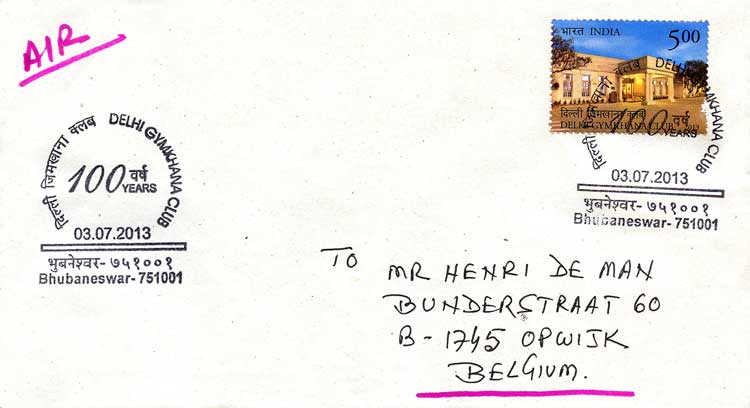 AIR
भारत INDIA
5.00
दिल्ली जिमखाना क्लब
DELHI GYMKHANA CLUB 2013
दिल्ली जिमखाना क्लब DELHI GYMKHANA CLUB
100 वर्ष
YEARS
03.07.2013
भुबनेश्वर- ७५१००१
Bhubaneswar- 751001
दिल्ली जिमखाना क्लब DELHI GYMKHANA CLUB
100 वर्ष
YEARS
03.07.2013
भुबनेश्वर- ७५१००१
Bhubaneswar-751001
TO
MR HENRI DE MAN
BUNDERSTRAAT 60
B-1745 OPWIJK
BELGIUM.